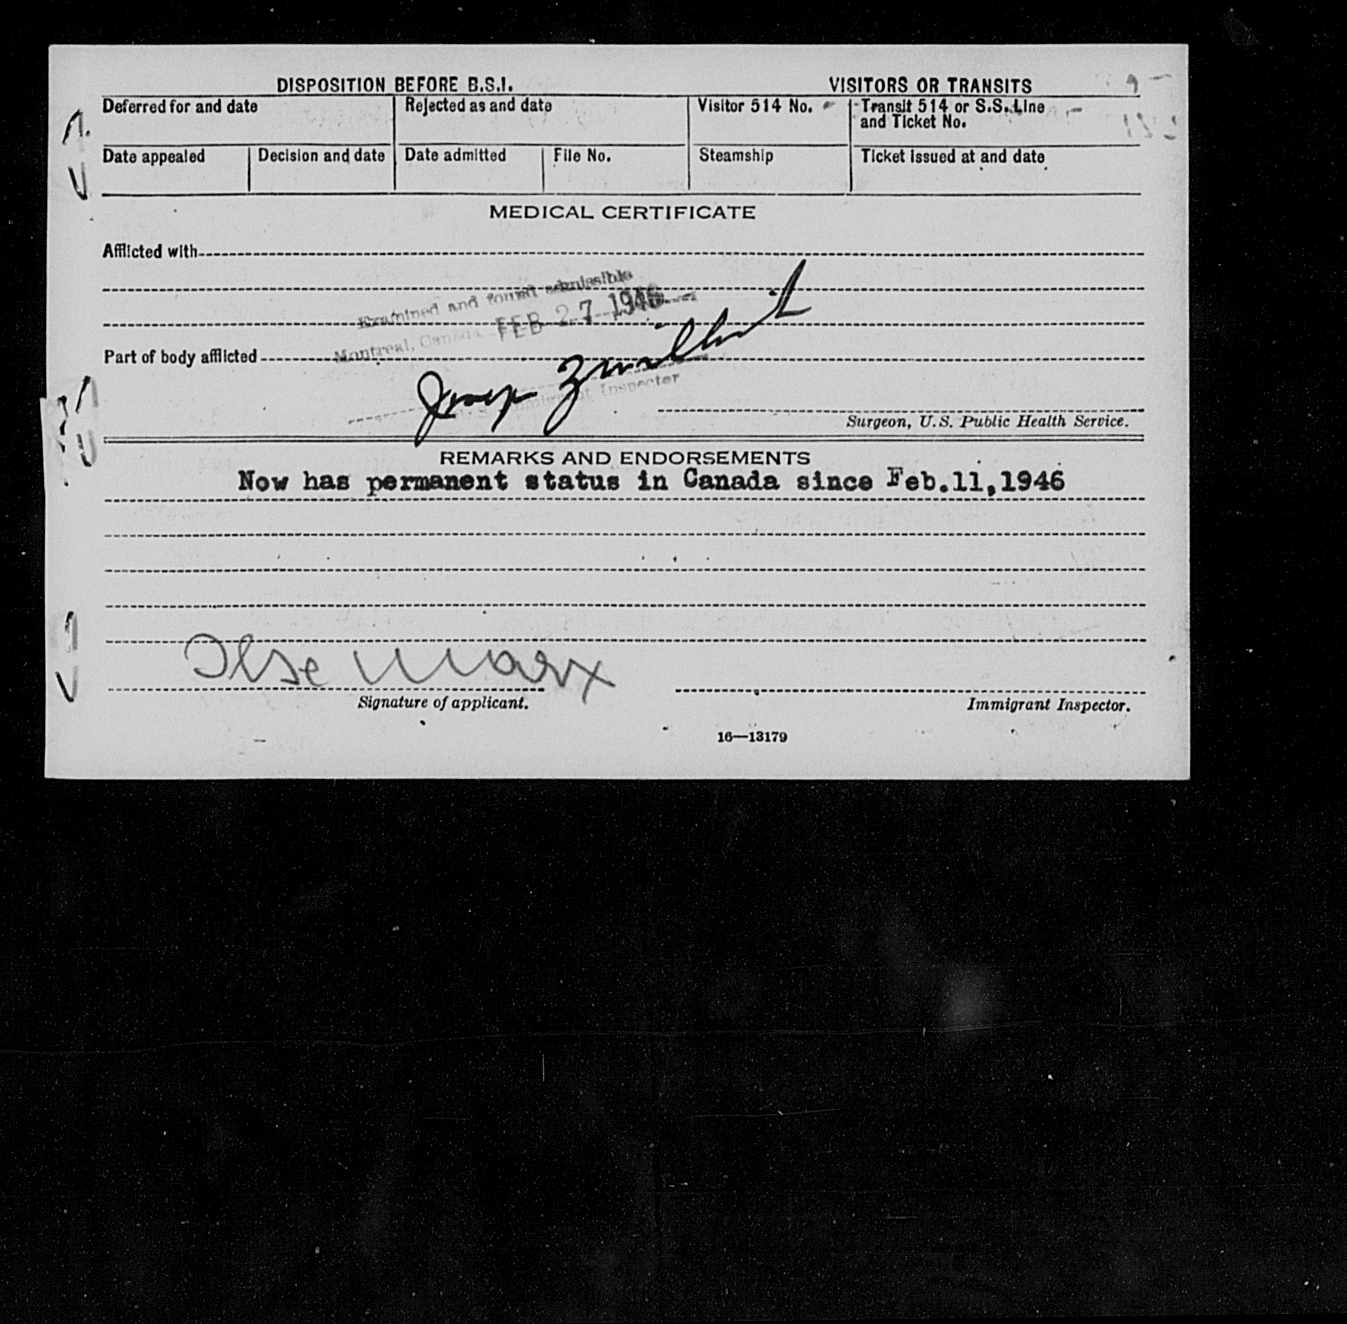 DISPOSITION BEFORE B.S.I.
VISITORS OR TRANSITS
Deferred for and date
Rejected as and date
Visitor 514 No.
Transit 514 or S.S. Line
and Ticket No.
Date appealed
Decision and date
Date admitted
File No.
Steamship
Ticket issued at and date
MEDICAL CERTIFICATE
Afflicted with
Examined and found admissible
Montreal, Canada FEB 27 1946
Part of body afflicted
Inspector
Surgeon, U.S. Public Health Service.
REMARKS AND ENDORSEMENTS
Now has permanent status in Canada since Feb.11,1946
Ilse Marx
Signature of applicant.
Immigrant Inspector.
16—13179